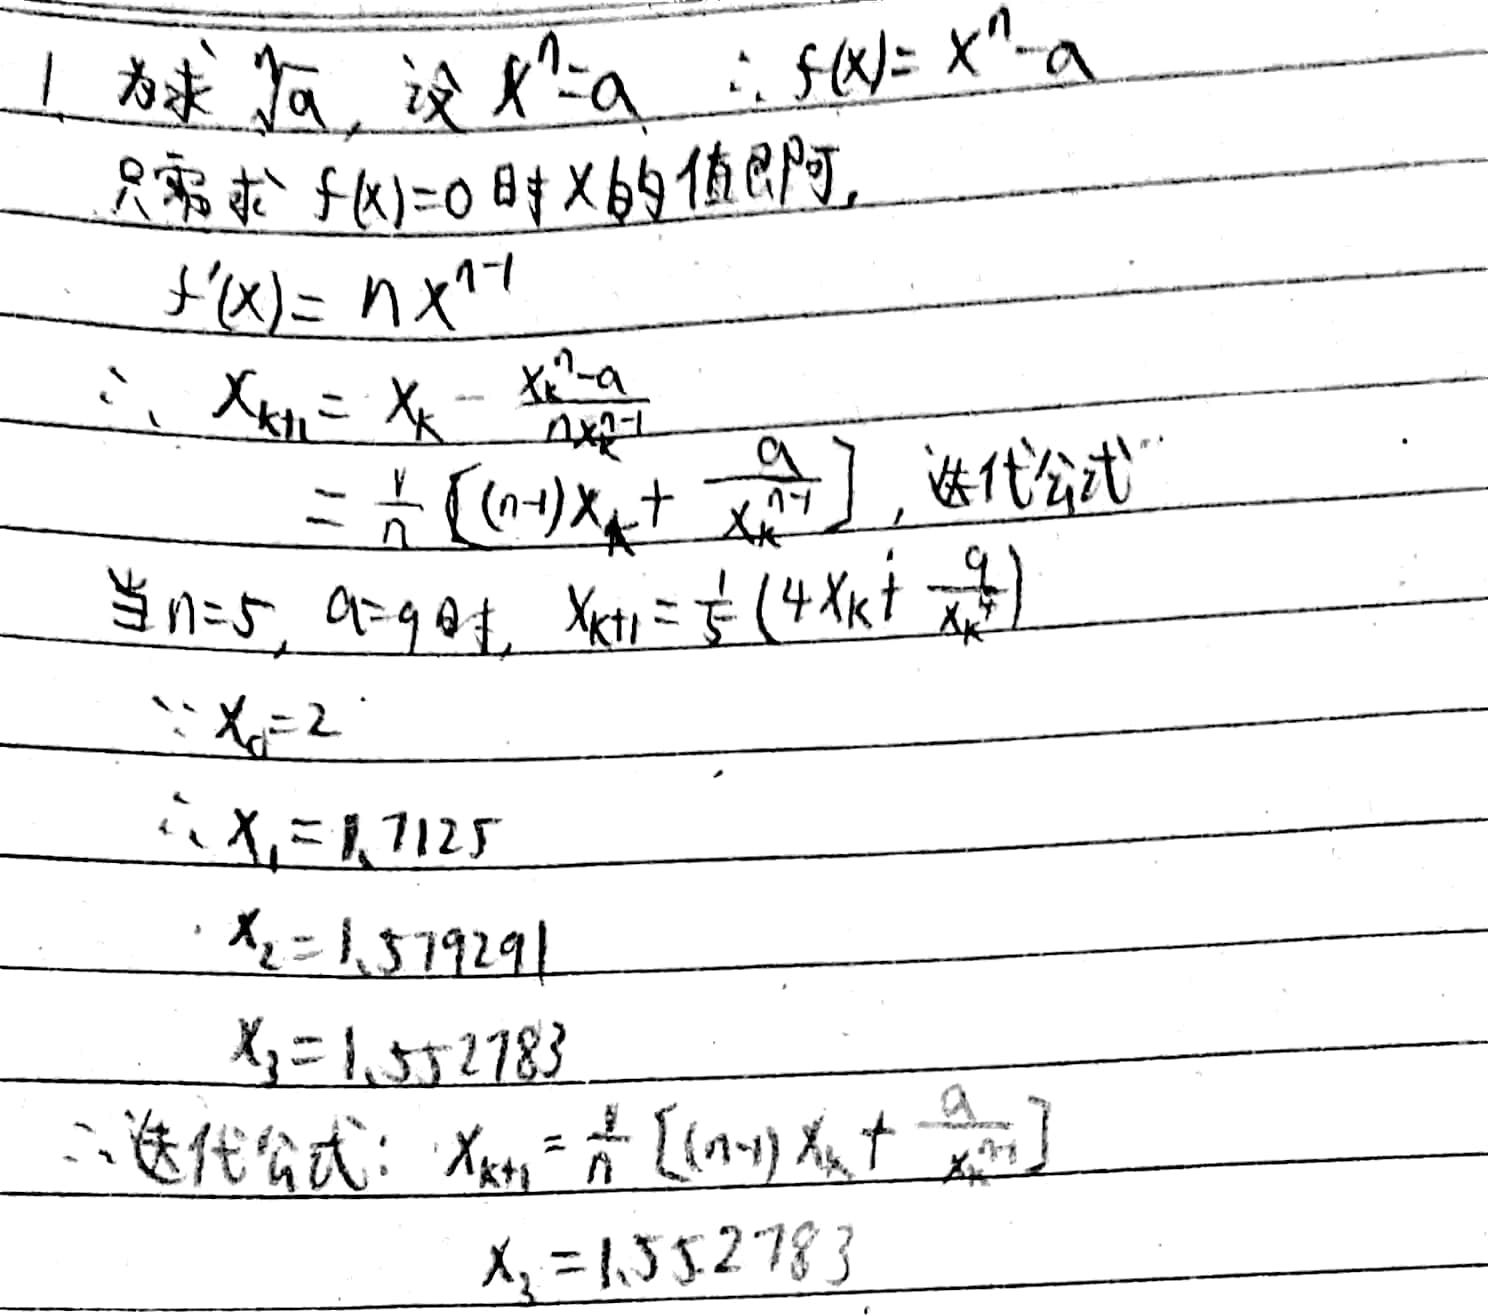 1 为求 ⁿ√a, 设 xⁿ=a ∴ f(x)= xⁿ-a
只需求 f(x)=0 时 x 的值即可.
f'(x)= nxⁿ⁻¹
∴ x_{k+1} = x_k - \frac{x_k^n-a}{nx_k^{n-1}}
= \frac{1}{n} [(n-1)x_k + \frac{a}{x_k^{n-1}}], 迭代公式
当 n=5, a=9 时, x_{k+1} = \frac{1}{5} (4x_k + \frac{9}{x_k^4})
∵ x_0=2
∴ x_1=1.7125
x_2=1.579291
x_3=1.552783
∴ 迭代公式: x_{k+1} = \frac{1}{n} [(n-1)x_k + \frac{a}{x_k^{n-1}}]
x_3=1.552783